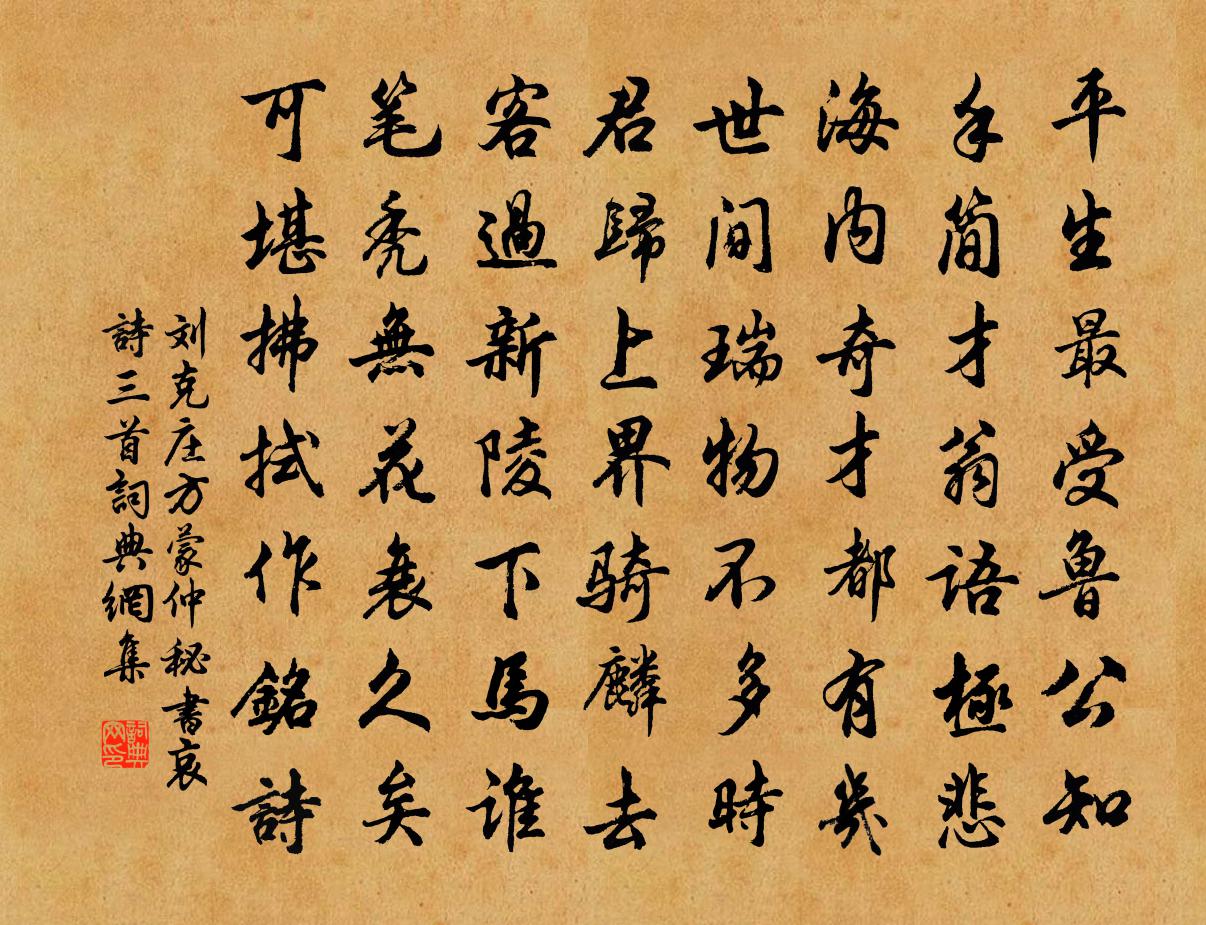 平生最受魯公知
手简才翁語極悲
海内奇才都有幾
世间瑞物不多時
君歸上界骑麟去
客過新陵下馬谁
笔秃無花衰久矣
可堪拂拭作銘詩
刘克庄方蒙仲秘書哀
詩三首詞典網集
詞典网印